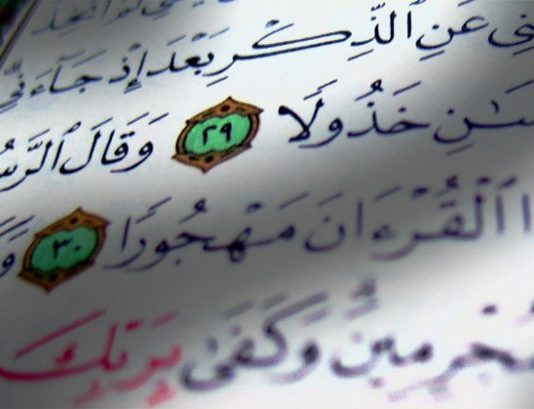 عَنِ ٱلذِّكْرِ بَعْدَ إِذْ جَآءَنِي
خَذُولًا ٢٩ وَقَالَ ٱلرَّسُ
ٱلْقُرْءَانَ مَهْجُورًا ٣٠
وَكَفَىٰ بِرَبِّكَ